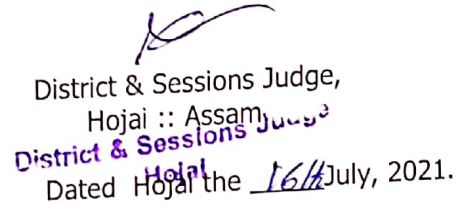 District & Sessions Judge,
Hojai :: Assam
District & Sessions Judge
Hojai
Dated Hojai the 16th July, 2021.